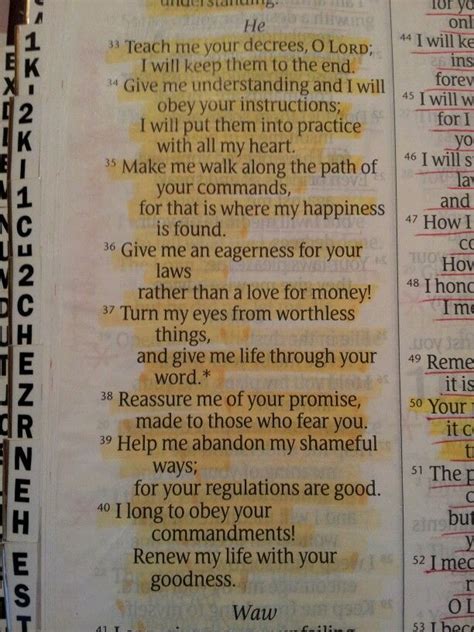 understanding.
He
33 Teach me your decrees, O LORD;
I will keep them to the end.
34 Give me understanding and I will
obey your instructions;
I will put them into practice
with all my heart.
35 Make me walk along the path of
your commands,
for that is where my happiness
is found.
36 Give me an eagerness for your
laws
rather than a love for money!
37 Turn my eyes from worthless
things,
and give me life through your
word.*
38 Reassure me of your promise,
made to those who fear you.
39 Help me abandon my shameful
ways;
for your regulations are good.
40 I long to obey your
commandments!
Renew my life with your
goodness.
Waw
for yo
only
44 I will ke
45 I will w
for I
46 I will s
law
and
47 How I
com
48 I hono
I me
49 Reme
it is
50 Your
it c
tr
51 The p
but
52 I mec
O L
1 K
2 K I
1 C
2 C H
E Z R
N E H
E S T